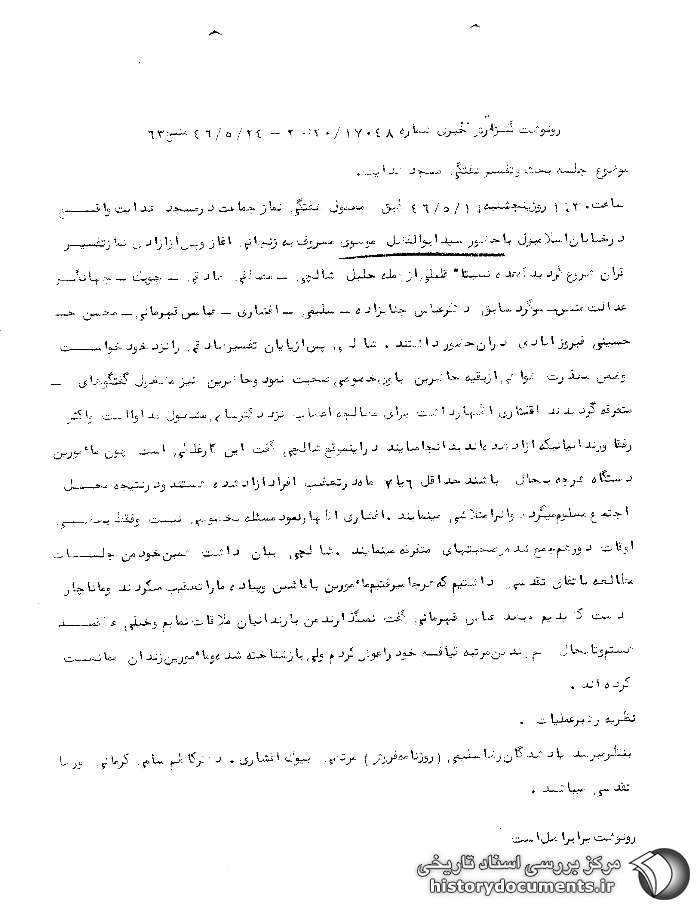 رونوشت گزارش خبری شماره ۱۷۰۴۸/ ۲۰:۲۰ – ۴۶/۵/۲۴ منبع ۶۳
موضوع جلسه بحث وتفسیر هفتگی مسجد هدایت.
ساعت روزپنجشنبه ۴۶/۵/ طبق معمول هفتگی نماز جماعت درمسجد هدایت واقع
درخیابان اسلامبول باحضور سید ابوالفضل موسوی معروف به زنجانی اغاز وپس ازادای نمازتفسیر
قران شروع گردید عده نسبتا" قلیلی ازجمله خلیل شالچی – مصطفی صادقی – چوپت – جهانگیر
عدالت منش – سرگرد سابق دکترعباس جنابزاده – سلیمی – افشاری – عباس قهرمانی – محسن
حسینی فیروزآبادی دران حضور داشتند . شالچی پس ازپایان تفسیر صادقی را نزد خود خواست
وضمن معذرت خواهی ازبقیه حاضرین بطورخصوصی صحبت نمود وحاضرین نیز مشغول گفتگوهای –
متفرقه گردیدند افشاری اظهارداشت برای معالجه اعصاب نزد دکترسامی مشغول مداوااست واکثر
رفقا وزندانیانیکه ازاد شده اند بدانجا میایند دراینموقع شالچی گفت این کارغلطی است چون مامورین
دستگاه هرچه بیحال باشند حداقل ۶ یا ۷ ماه درتعقیب افراد ازاد شده هستند ودرنتیجه محل
اجتماع معلوم میگردد وانرا متلاشی مینمایند . افشاری اظهارنمود مسئله بخصوصی نیست وفقط بعضی
اوقات دورهم جمع شده وصحبتهای متفرقه مینمایند . شالچی بیان داشت همین خود من جلسات
مطالعه باتفاق تقدسی داشتیم که هرجا میرفتیم مامورین باماشین وپیاده ماراتعقیب میکردند وماناچار
دست کشیدیم عباس قهرمانی گفت نمیگذارند من بازندانیان ملاقات نمایم وخیلی علاقمند
هستم وتابحال چندین مرتبه قیافه خود راعوض کردم ولی بازشناخته شده ومامورین زندان ممانعت
کرده اند .
نظریه رهبرعملیات .
بنظرمیرسد یاد شدگان رضا سلیمی (روزنامه فروش) مرتضی بیوک افشاری . دکترکاظم سامی کرمانی ورضا
تقدسی میباشند .
رونوشت برابراصل است
مرکز بررسی اسناد تاریخی
historydocuments.ir